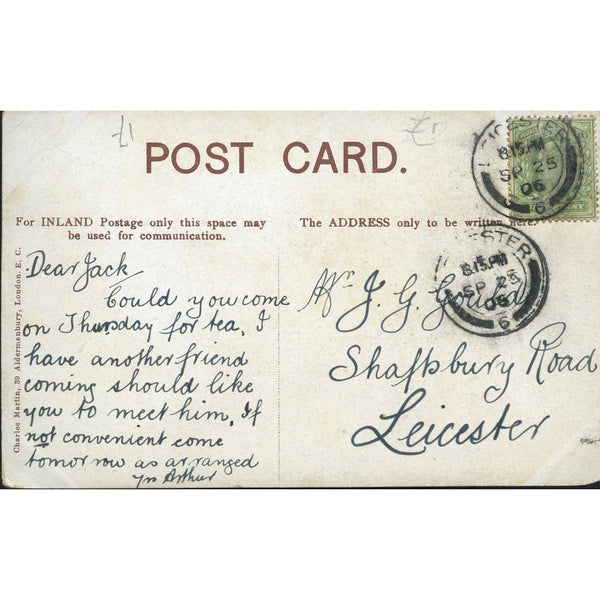 £1
POST CARD.
For INLAND Postage only this space may
be used for communication.
The ADDRESS only to be written here.
Charles Martin, 39 Aldermanbury, London. E. C.
Dear Jack
Could you come
on Thursday for tea, I
have another friend
coming should like
you to meet him, If
not convenient come
tomorrow as arranged
yrs Arthur
Mr J. G. Gould
Shaftsbury Road
Leicester
LEICESTER
8.15.PM
SP 25
06
6
LEICESTER
8.15.PM
SP 25
06
6